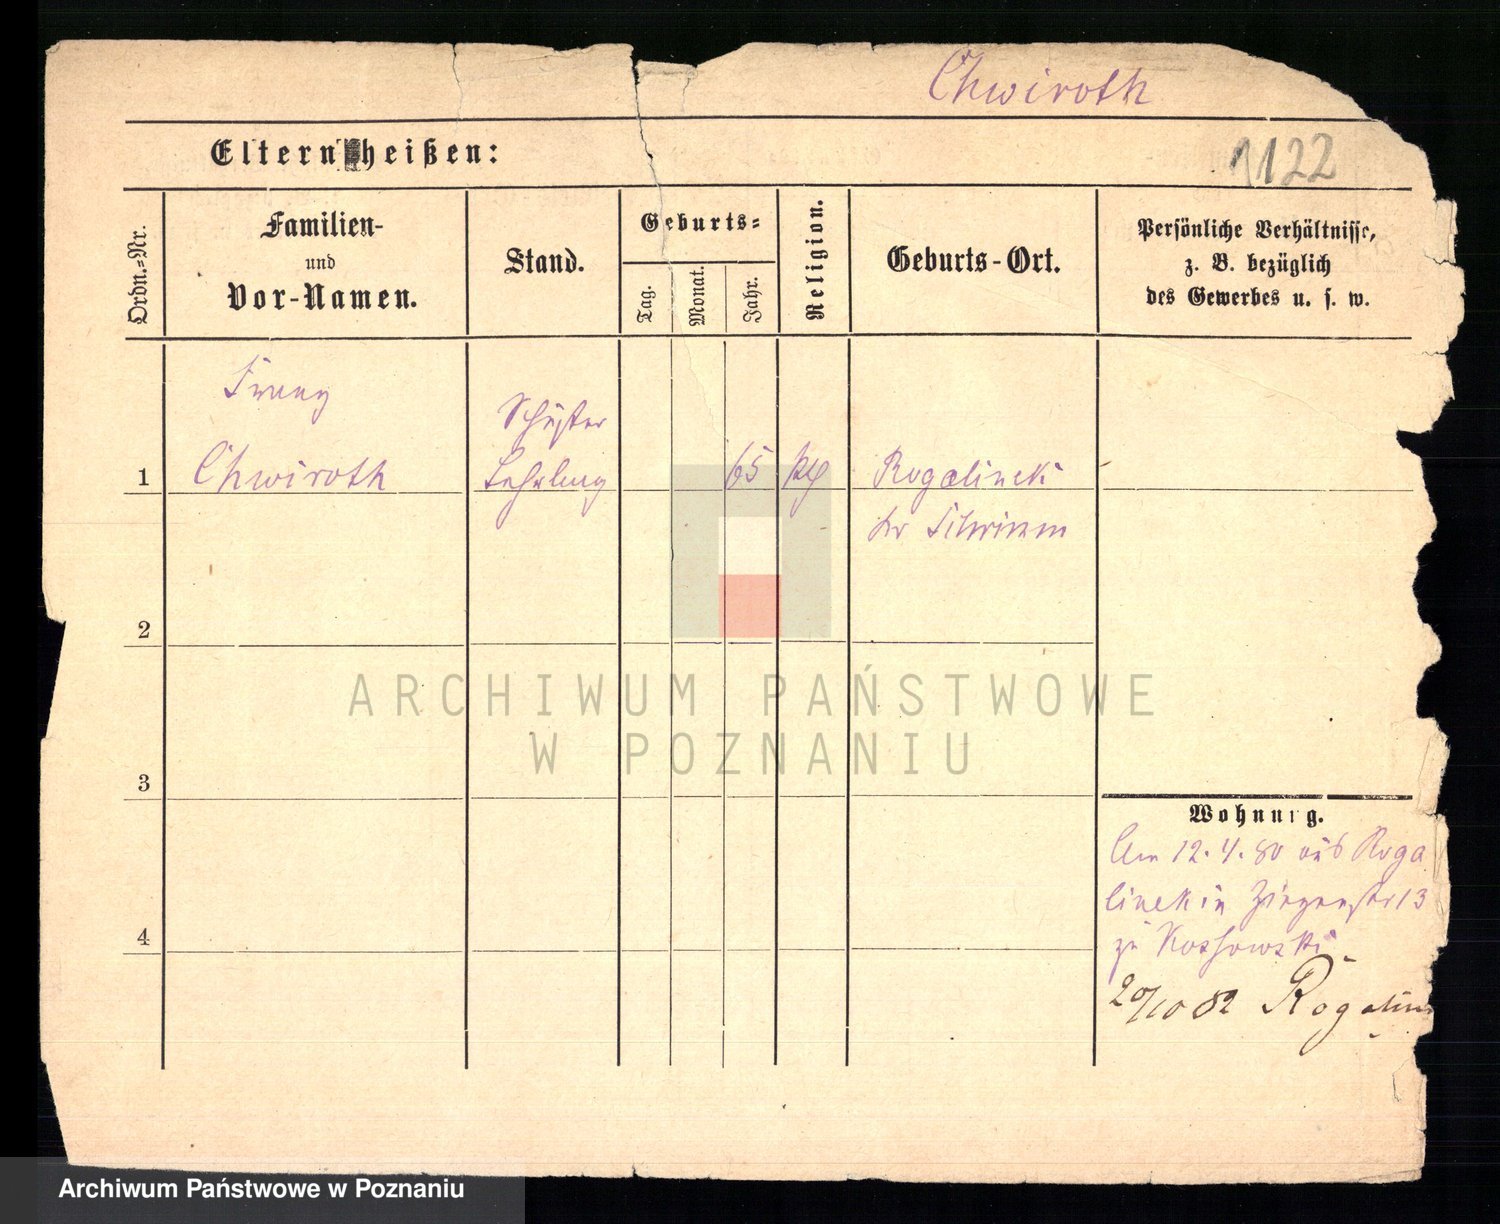 Chwiroth
Eltern heißen:
1122
Ordn.-Nr.
Familien-
und
Vor-Namen.
Stand.
Geburts-
Tag.
Monat.
Jahr.
Religion.
Geburts-Ort.
Persönliche Verhältnisse,
z. B. bezüglich
des Gewerbes u. s. w.
Franz
Schuster
1 Chwiroth Lehrling 65 kth Rogalinek
kr Schrimm
2
ARCHIWUM PAŃSTWOWE
W POZNANIU
3
Wohnung.
Am 12.4.80 aus Roga
linek in Ziegenstr 13
4
zu Koszowski
20/10 82 Rogalin
Archiwum Państwowe w Poznaniu